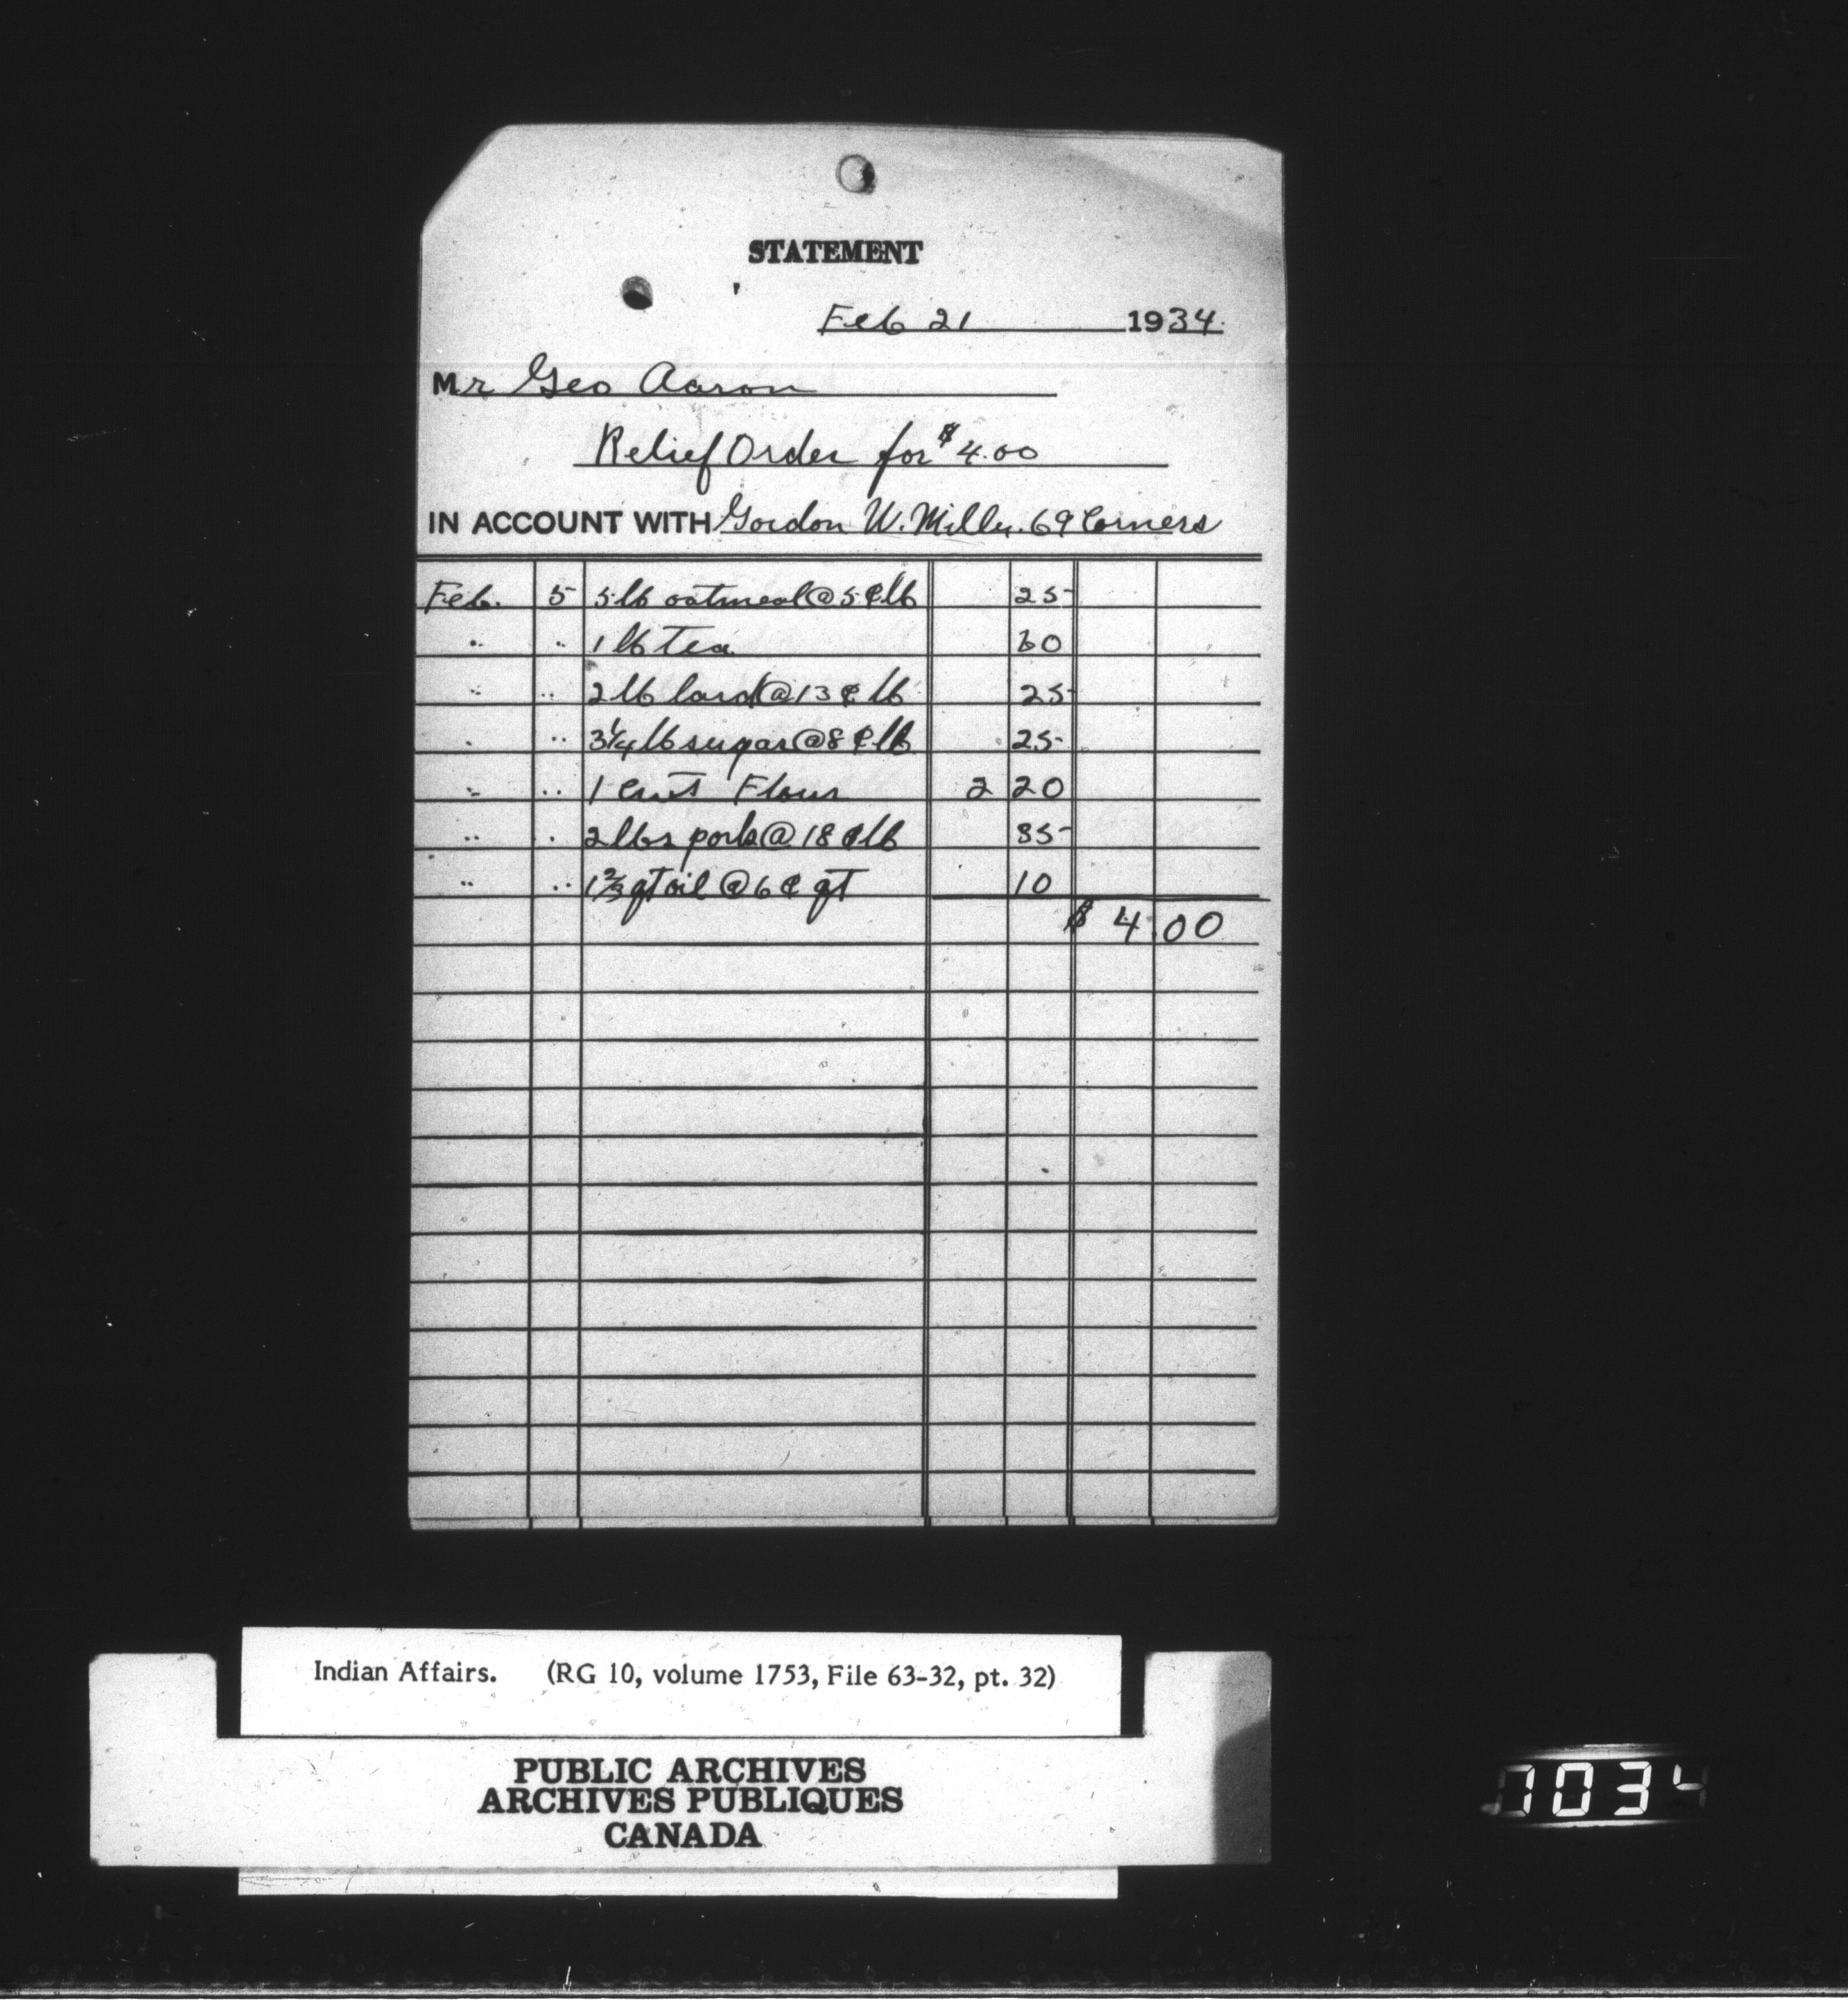 STATEMENT
Feb 21 1934.
Mr Geo Aaron
Relief Order for $4.00
IN ACCOUNT WITH Gordon W. Miller. 69 Corners
Feb. 5 5 lb oatmeal @ 5 ¢ lb 25
" " 1 lb Tea 60
" " 2 lb lard @ 13 ¢ lb 25
" " 3 1/4 lb sugar @ 8 ¢ lb 25
" " 1 cwt Flour 2 20
" " 2 lbs pork @ 18 ¢ lb 35
" " 1 2/3 qt oil @ 6 ¢ qt 10
$ 4.00
Indian Affairs. (RG 10, volume 1753, File 63-32, pt. 32)
PUBLIC ARCHIVES
ARCHIVES PUBLIQUES
CANADA
1034